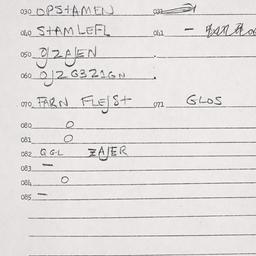 030 OPSTAMEN 031
040 STAMLEFL 041 —
050 OJZAJEN
060 OJZG321GN
070 FARN FLEJST 071 GLOS
080 O
081 O
082 QGL ZAJER
083 —
084 O
085 —